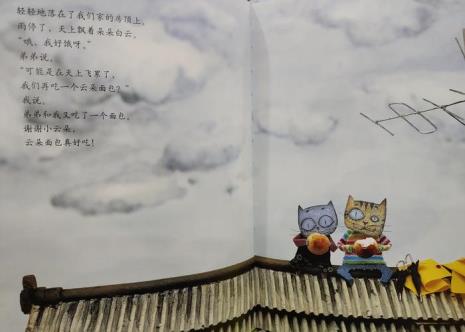 轻轻地落在了我们家的房顶上。
雨停了，天上飘着朵朵白云。
“哦，我好饿呀。”
弟弟说。
“可能是在天上飞累了，
我们再吃一个云朵面包？”
我说。
弟弟和我又吃了一个面包。
谢谢小云朵。
云朵面包真好吃！